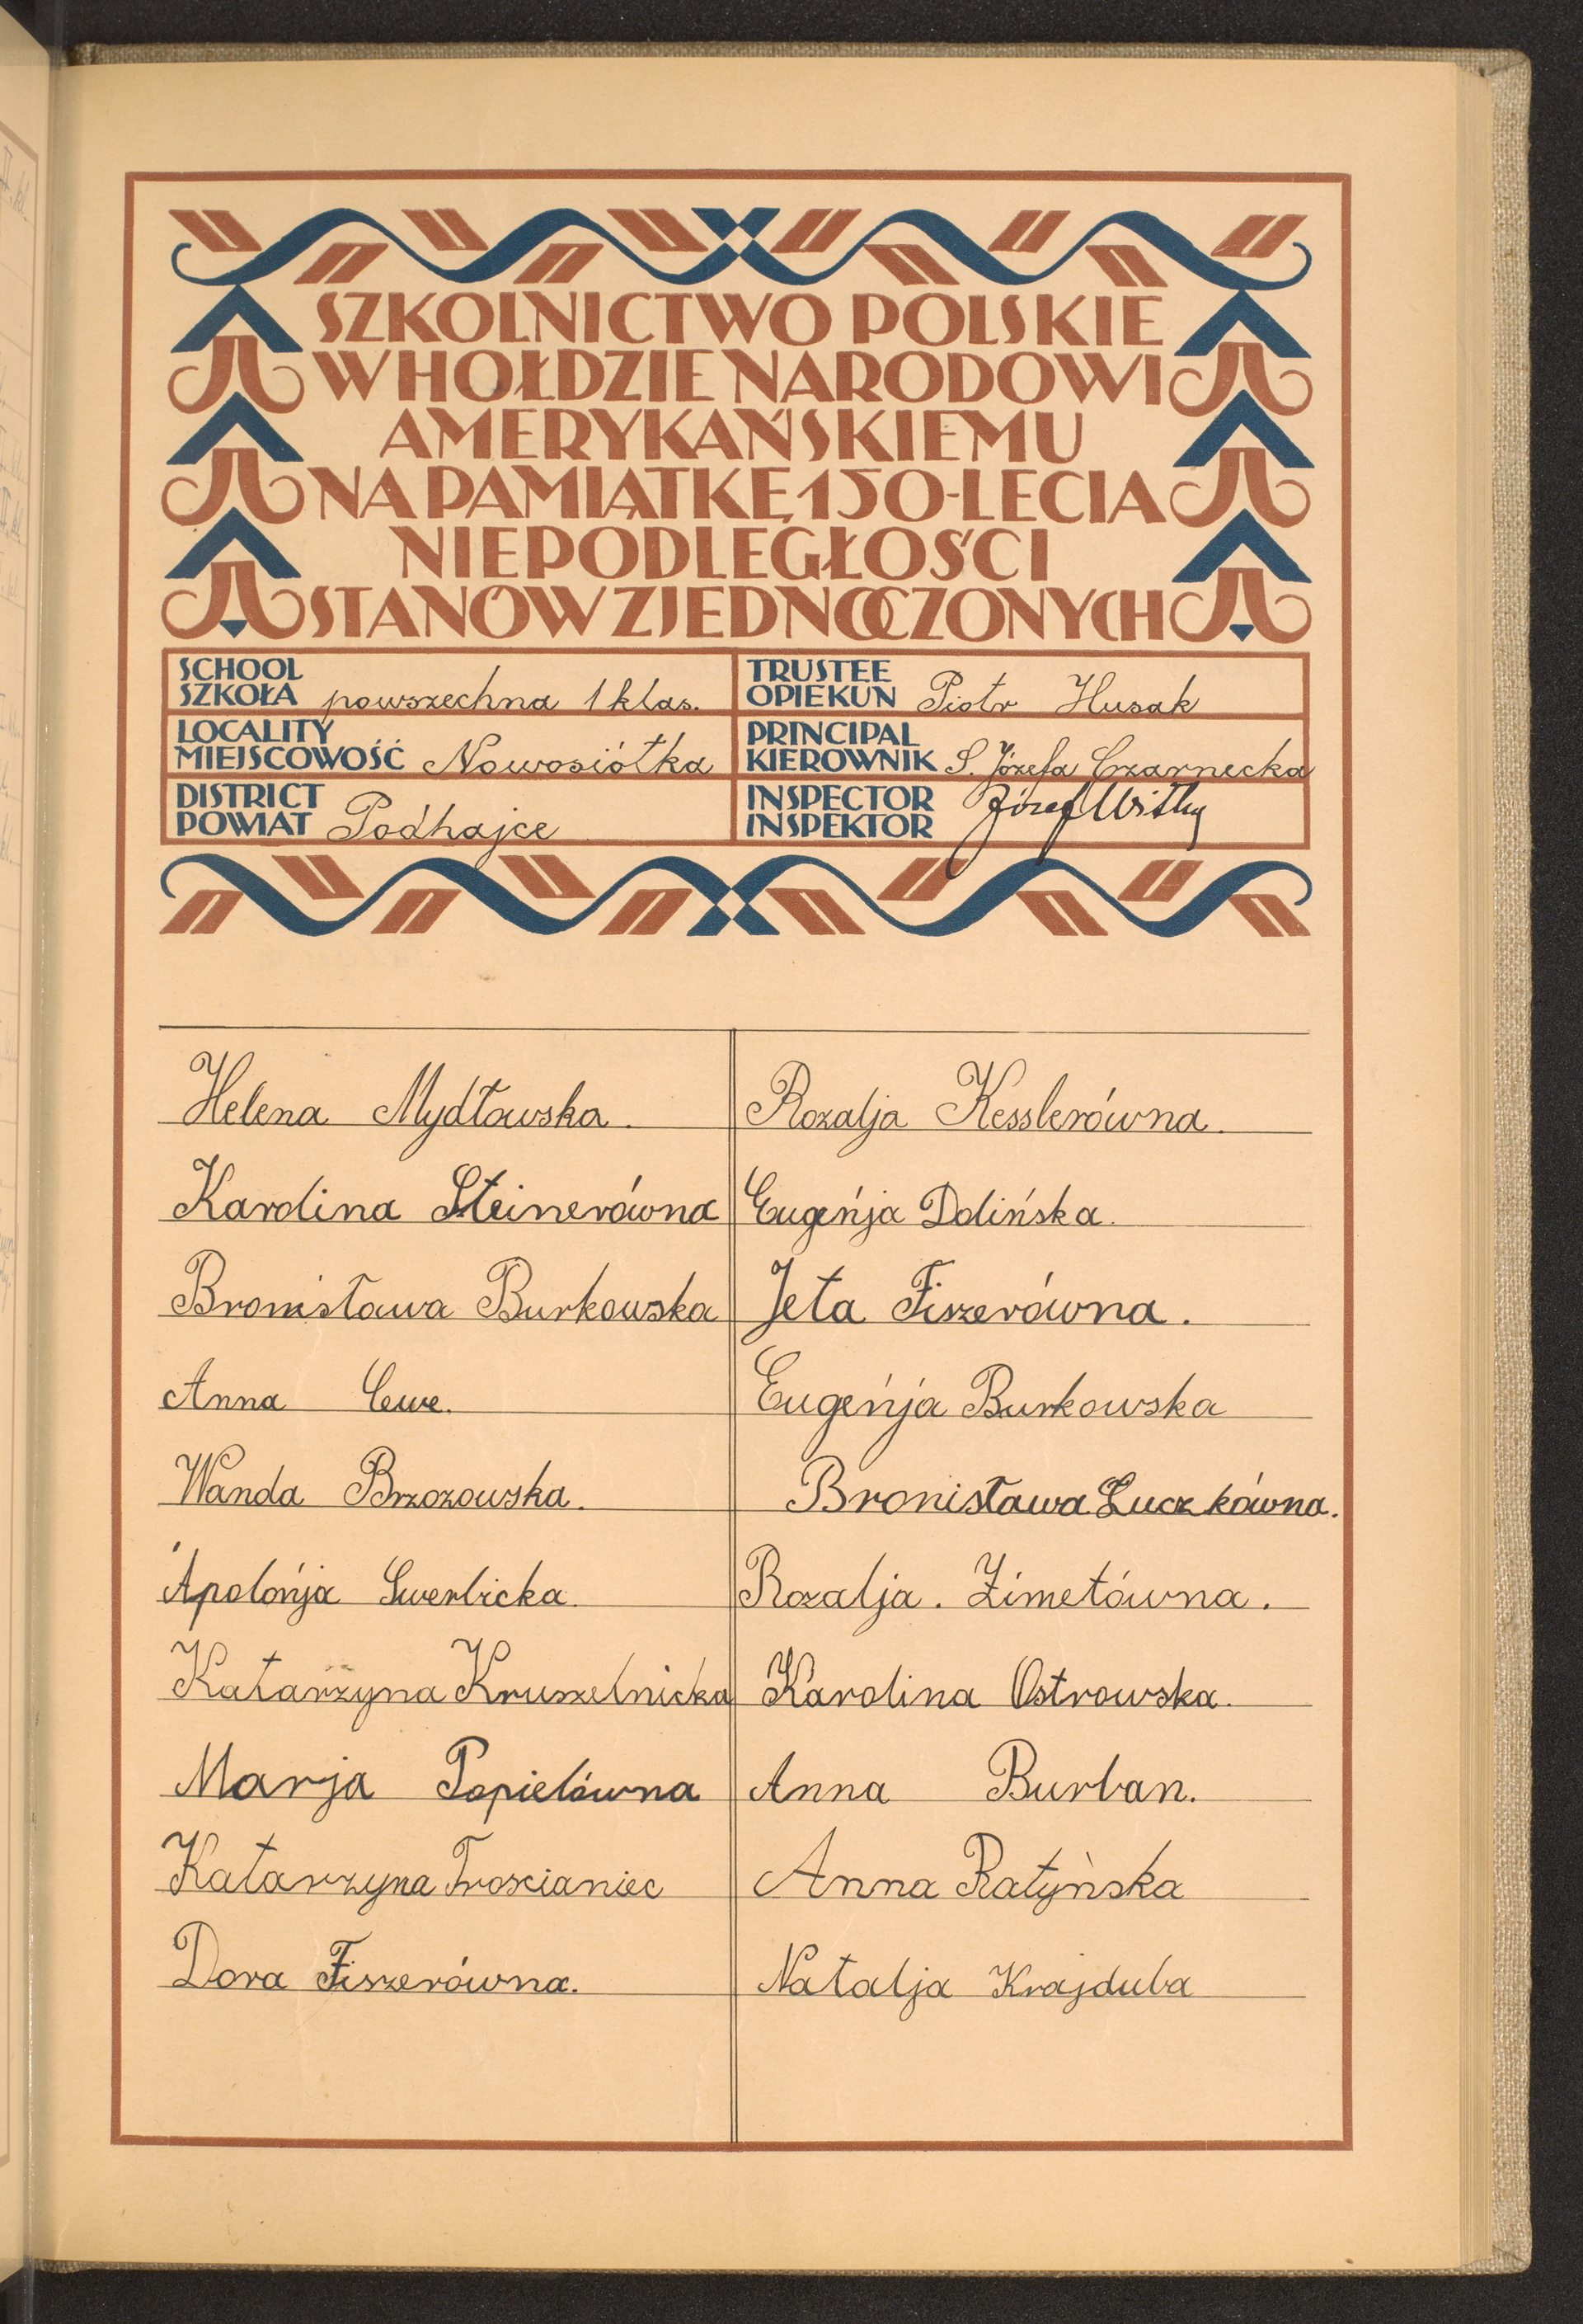 SZKOLNICTWO POLSKIE
W HOŁDZIE NARODOWI
AMERYKAŃSKIEMU
NA PAMIĄTKĘ 150-LECIA
NIEPODLEGŁOŚCI
STANÓW ZJEDNOCZONYCH
SCHOOL
SZKOŁA powszechna 1 klas.
TRUSTEE
OPIEKUN Piotr Husak
LOCALITY
MIEJSCOWOŚĆ Nowosiółka
PRINCIPAL
KIEROWNIK S. Józefa Czarnecka
DISTRICT
POWIAT Podhajce
INSPECTOR
INSPEKTOR Józef
Helena Mydłowska.
Karolina Steinerówna
Bronisława Burkowska
Anna Cewe.
Wanda Brzozowska.
Apolońja Swerbicka.
Katarzyna Kruszelnicka
Marja Popielówna
Katarzyna Troscianiec
Dora Fiszerówna.
Rozalja Kesslerówna.
Eugeńja Dolińska.
Jeta Fiszerówna.
Eugeńja Burkowska
Bronisława Luczkówna.
Rozalja. Zimetówna.
Karolina Ostrowska.
Anna Burban.
Anna Ratyńska
Natalja Krajduba